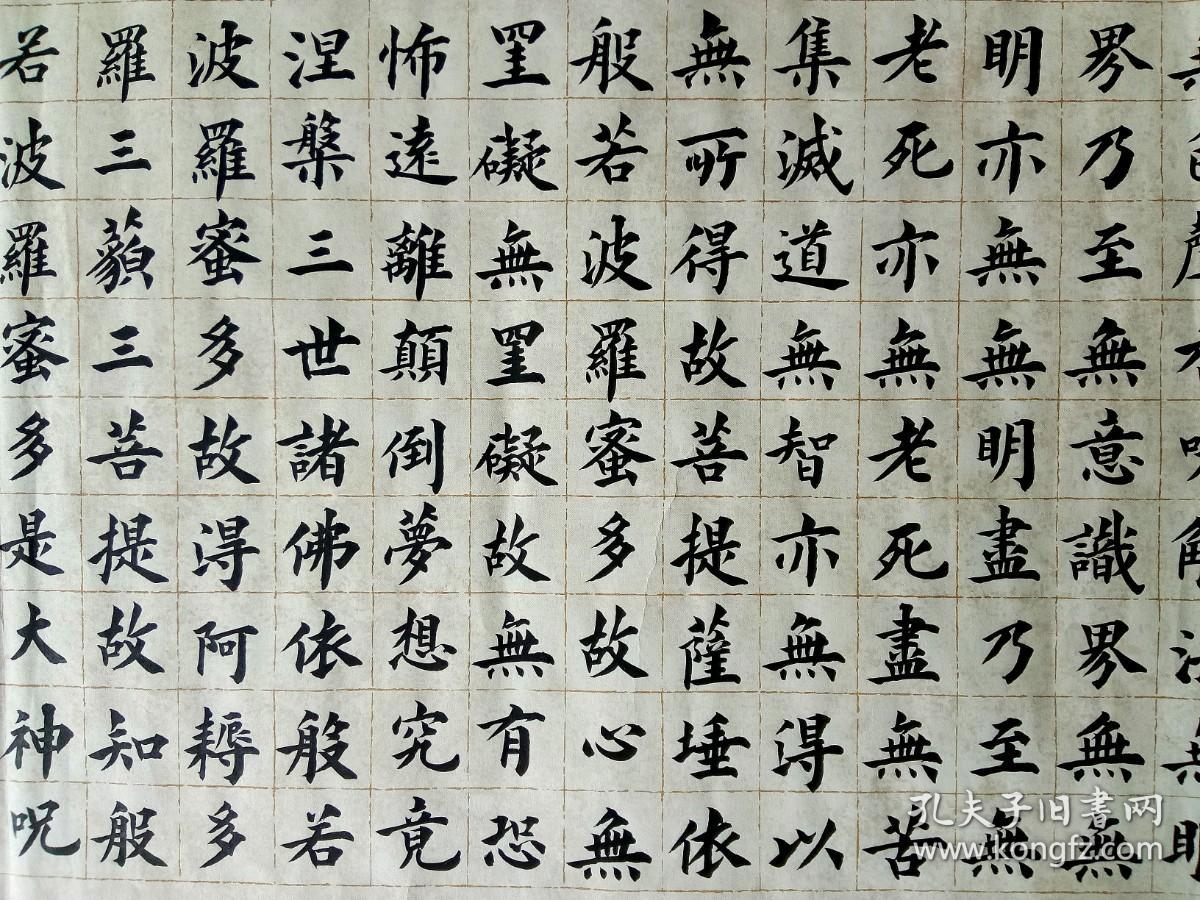 界乃至無意識界無無
明亦無無明盡乃至無
老死亦無老死盡無苦
集滅道無智亦無得以
無所得故菩提薩埵依
般若波羅蜜多故心無
罣礙無罣礙故無有恐
怖遠離顛倒夢想究竟
涅槃三世諸佛依般若
波羅蜜多故得阿耨多
羅三藐三菩提故知般
若波羅蜜多是大神呪
孔夫子旧書网
www.kongfz.com